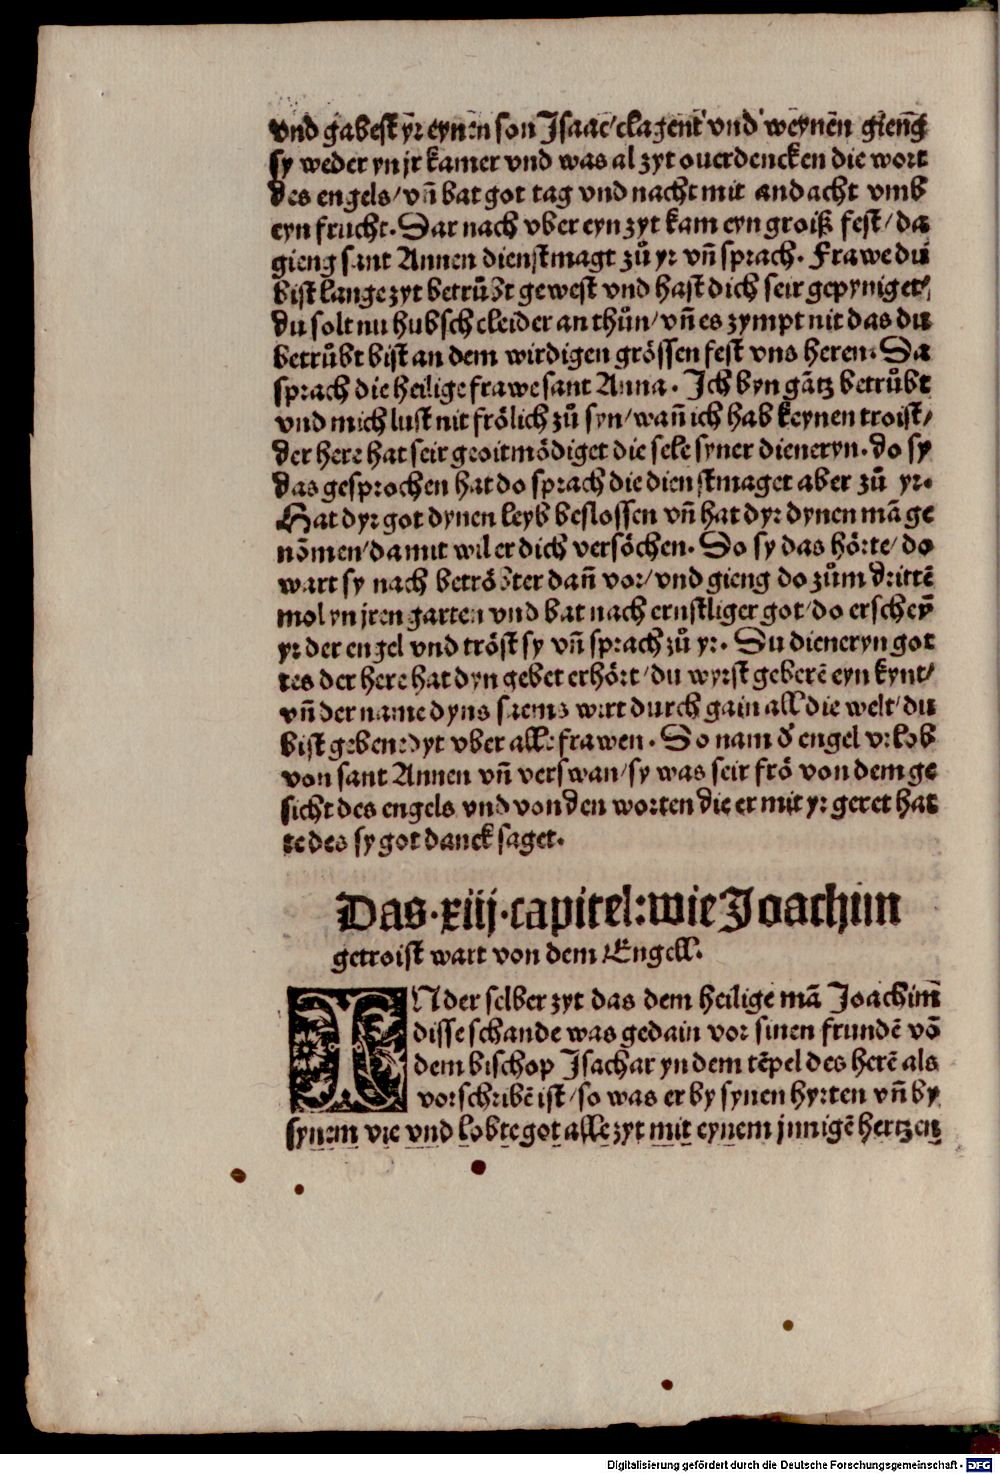 vnd gabest yr eynen son Isaac/clagent vnd weynen gieng
sy weder yn jr kamer vnd was al zyt ouerdencken die wort
des engels/vn̄ bat got tag vnd nacht mit andacht vmb
eyn frucht. Dar nach vber eyn zyt kam eyn groiß fest/da
gieng sant Annen dienstmagt zů yr vn̄ sprach. Frawe du
bist lange zyt betrůbt gewest vnd hast dich seir gepyniget/
du solt nu hubsch cleider an thůn/vn̄ es zympt nit das du
betrůbt bist an dem wirdigen grössen fest vns heren. Da
sprach die heilige frawe sant Anna. Ich byn gātz betrůbt
vnd mich lust nit frölich zů syn/wan̄ ich hab keynen troist/
der here hat seir geoitmödiget die sele syner dieneryn. do sy
das gesprochen hat do sprach die dienstmaget aber zů yr.
Hat dyr got dynen leyb beslossen vn̄ hat dyr dynen mā ge
nōmen/damit wil er dich versöchen. Do sy das hörte/do
wart sy nach betröbter dan̄ vor/vnd gieng do zům drittē
mol yn jren garten vnd bat nach ernstliger got/do erschey̅
yr der engel vnd tröst sy vn̄ sprach zů yr. Du dieneryn got
tes der here hat dyn gebet erhört/du wyrst geberē eyn kynt/
vn̄ der name dyns saems wirt durch gain all die welt/du
bist gebenedyt vber alle frawen. Do nam d̄ engel vrlob
von sant Annen vn̄ verswan/sy was seir frö von dem ge
sicht des engels vnd von den worten die er mit yr geret hat
te des sy got danck saget.
Das·xiij·capitel:wie Joachim
getroist wart von dem Engell.
IN der selber zyt das dem heilige mā Joachim
disse schande was gedain vor sinen frundē vō
dem bischop Isachar yn dem tēpel des herē als
vorschribē ist/so was er by synen hyrten vn̄ by
synem vie vnd lobte got alle zyt mit eynem jnnigē hertzen
Digitalisierung gefördert durch die Deutsche Forschungsgemeinschaft - DFG